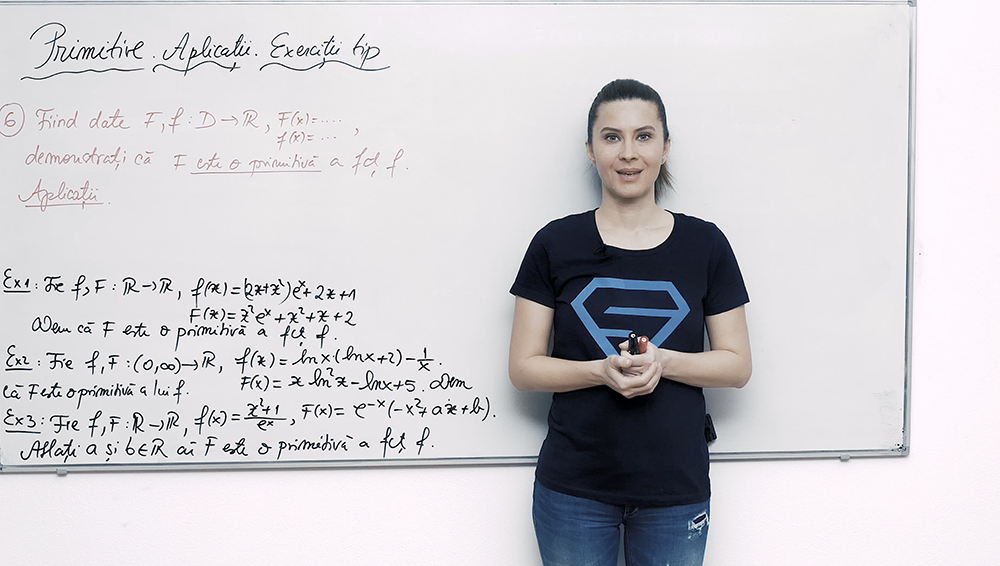 Primitive. Aplicații. Exerciții tip
6 Fiind date F, f : D → ℝ, F(x)=....
f(x)=... ,
demonstrați că F este o primitivă a fcț f.
Aplicații.
Ex1: Fie f, F : ℝ → ℝ, f(x)=(2x+x²)eˣ+2x+1
F(x)=x²eˣ+x²+x+2
Dem că F este o primitivă a fcț f.
Ex2: Fie f, F : (0,∞) → ℝ, f(x)=lnx(lnx+2)-1/x.
că F este o primitivă a lui f. F(x)= x ln²x-lnx+5. Dem
Ex3: Fie f, F : ℝ → ℝ, f(x)=x²+1/eˣ, F(x)= e⁻ˣ(-x²+ax+b).
Aflați a și b∈ℝ aî F este o primitivă a fcț f.